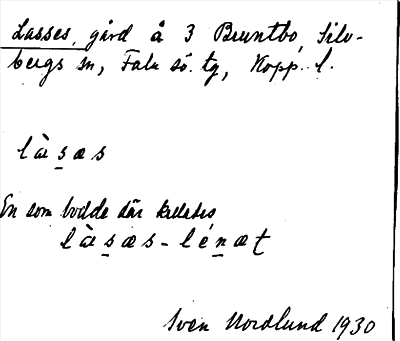 Lasses, gård å 3 Bruntbo, Silv-
bergs sn, Falu sö. tg, Kopp. l.
làs̱æs
En som bodde där kallades
làs̱æs-léṉæt
Sven Nordlund 1930